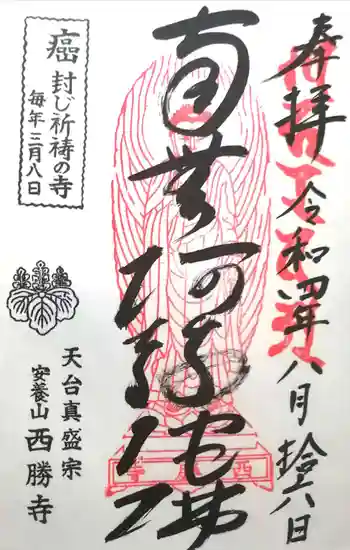 奉拝
令和四年八月拾六日
南無阿弥陀佛
癌封じ祈祷の寺
毎年三月八日
天台真盛宗
安養山 西勝寺